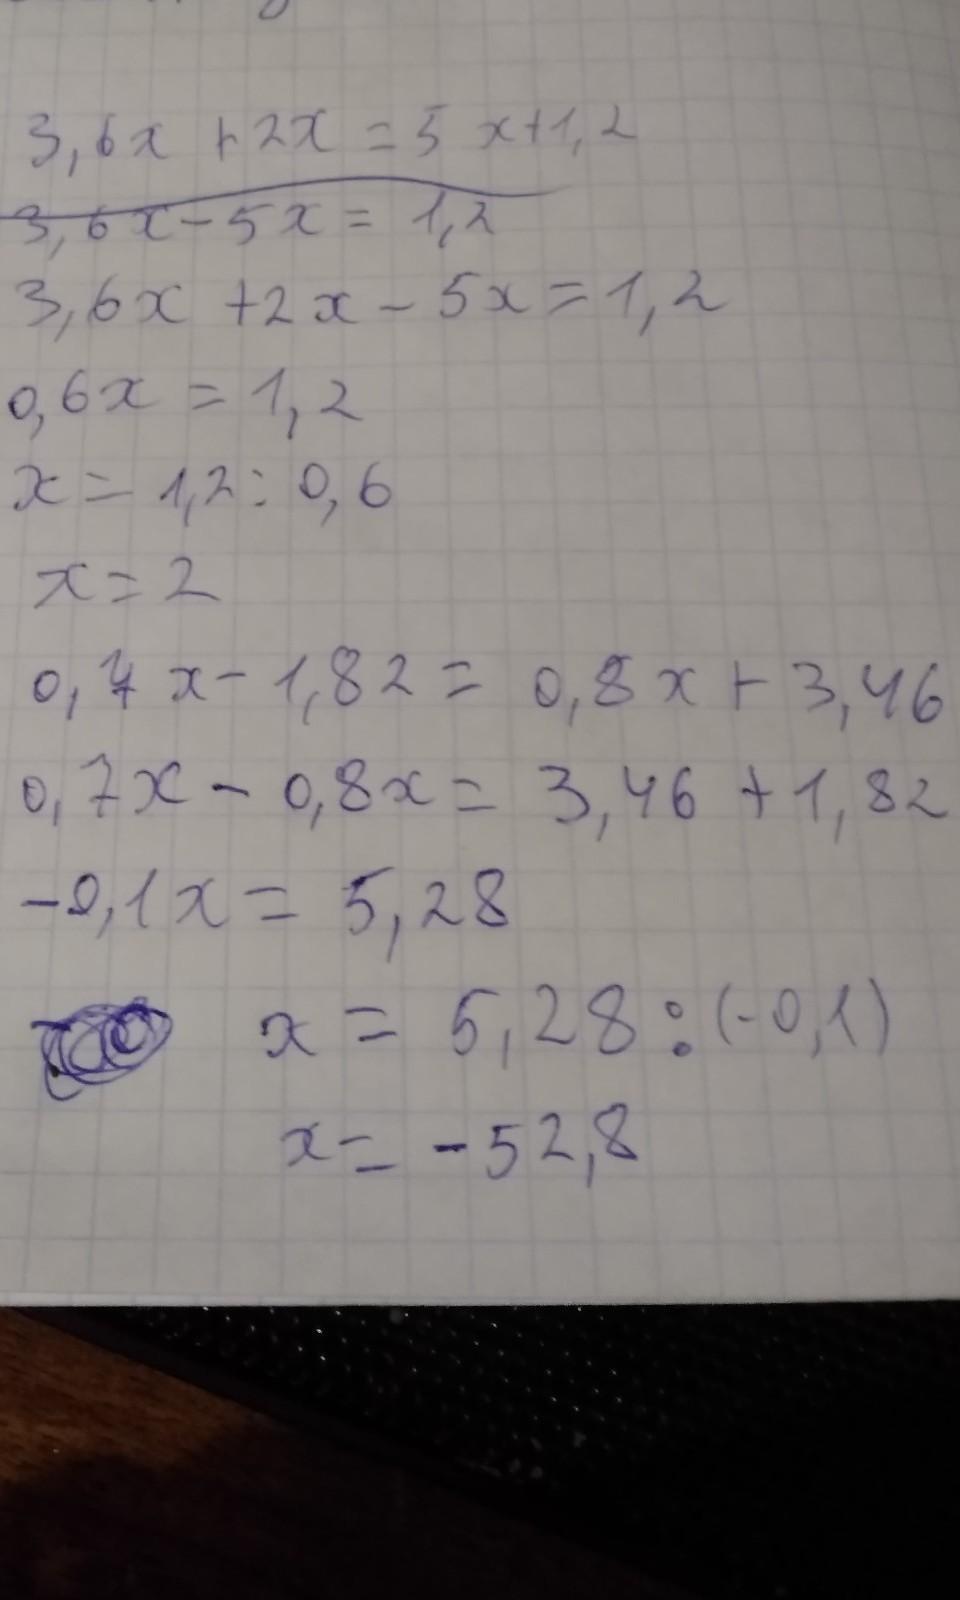 3,6x + 2x = 5x + 1,2
3,6x - 5x = 1,2
3,6x + 2x - 5x = 1,2
0,6x = 1,2
x = 1,2 : 0,6
x = 2
0,7x - 1,82 = 0,8x + 3,46
0,7x - 0,8x = 3,46 + 1,82
-0,1x = 5,28
x = 5,28 : (-0,1)
x = -52,8